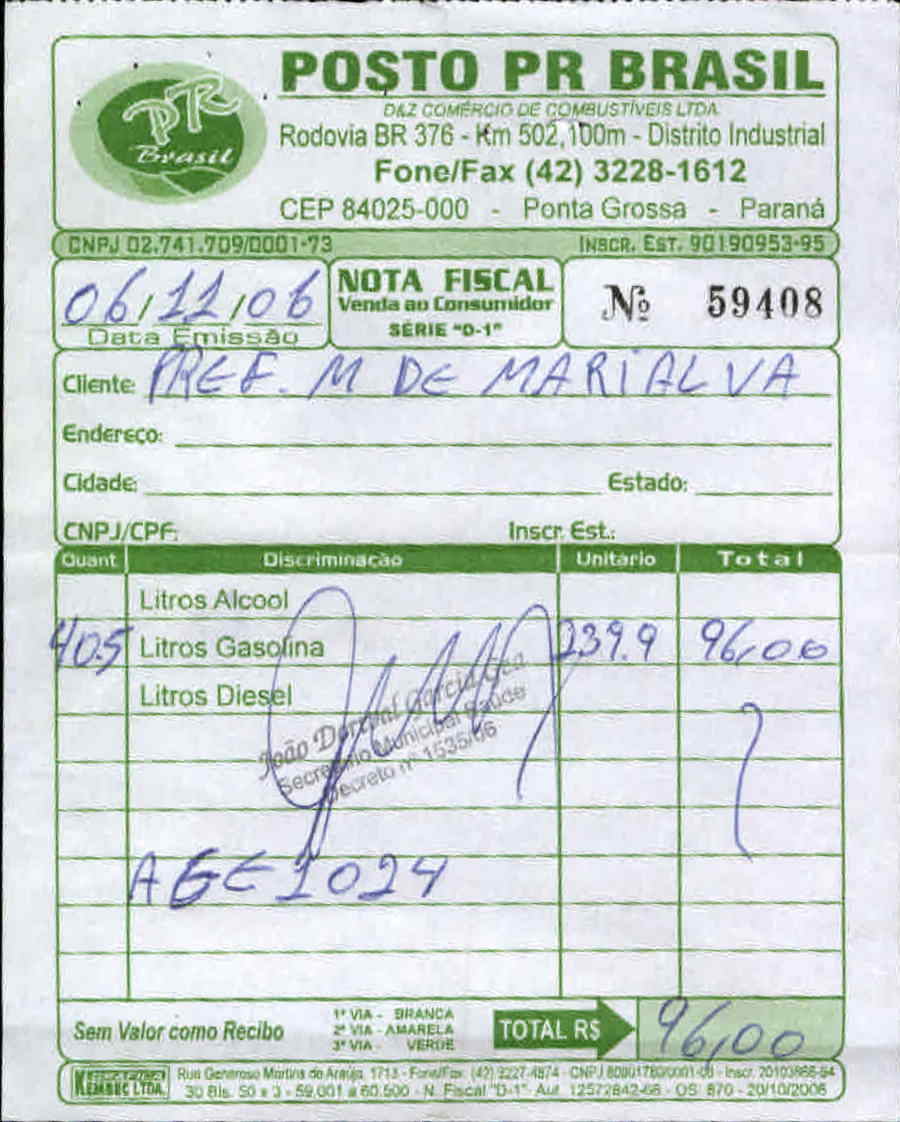 PR
Brasil
POSTO PR BRASIL
D&Z COMÉRCIO DE COMBUSTÍVEIS LTDA
Rodovia BR 376 - Km 502,100m - Distrito Industrial
Fone/Fax (42) 3228-1612
CEP 84025-000 - Ponta Grossa - Paraná
CNPJ 02.741.709/0001-73 INSCR. EST. 90190953-95
06/11/06
Data Emissão
NOTA FISCAL
Venda ao Consumidor
SÉRIE "D-1"
Nº 59408
Cliente: PREF. M DE MARIALVA
Endereço:
Cidade: Estado:
CNPJ/CPF: Inscr. Est.:
Quant Discriminação Unitário Total
Litros Alcool
40.5 Litros Gasolina 239.9 96,00
Litros Diesel
João Dorival Garcia
Secretário Municipal Saúde
Decreto nº 1535/06
AGE 1024
Sem Valor como Recibo
1ª VIA - BRANCA
2ª VIA - AMARELA
3ª VIA - VERDE
TOTAL R$ 96,00
LTDA. Rua Generoso Martins de Araújo, 1713 - Fone/Fax: (42) 3227-4874 - CNPJ
30 Bls. 50 x 3 - 59.001 a 60.500 - N. Fiscal "D-1" - Aut. 12572842-66 - OS: 870 - 20/10/2006